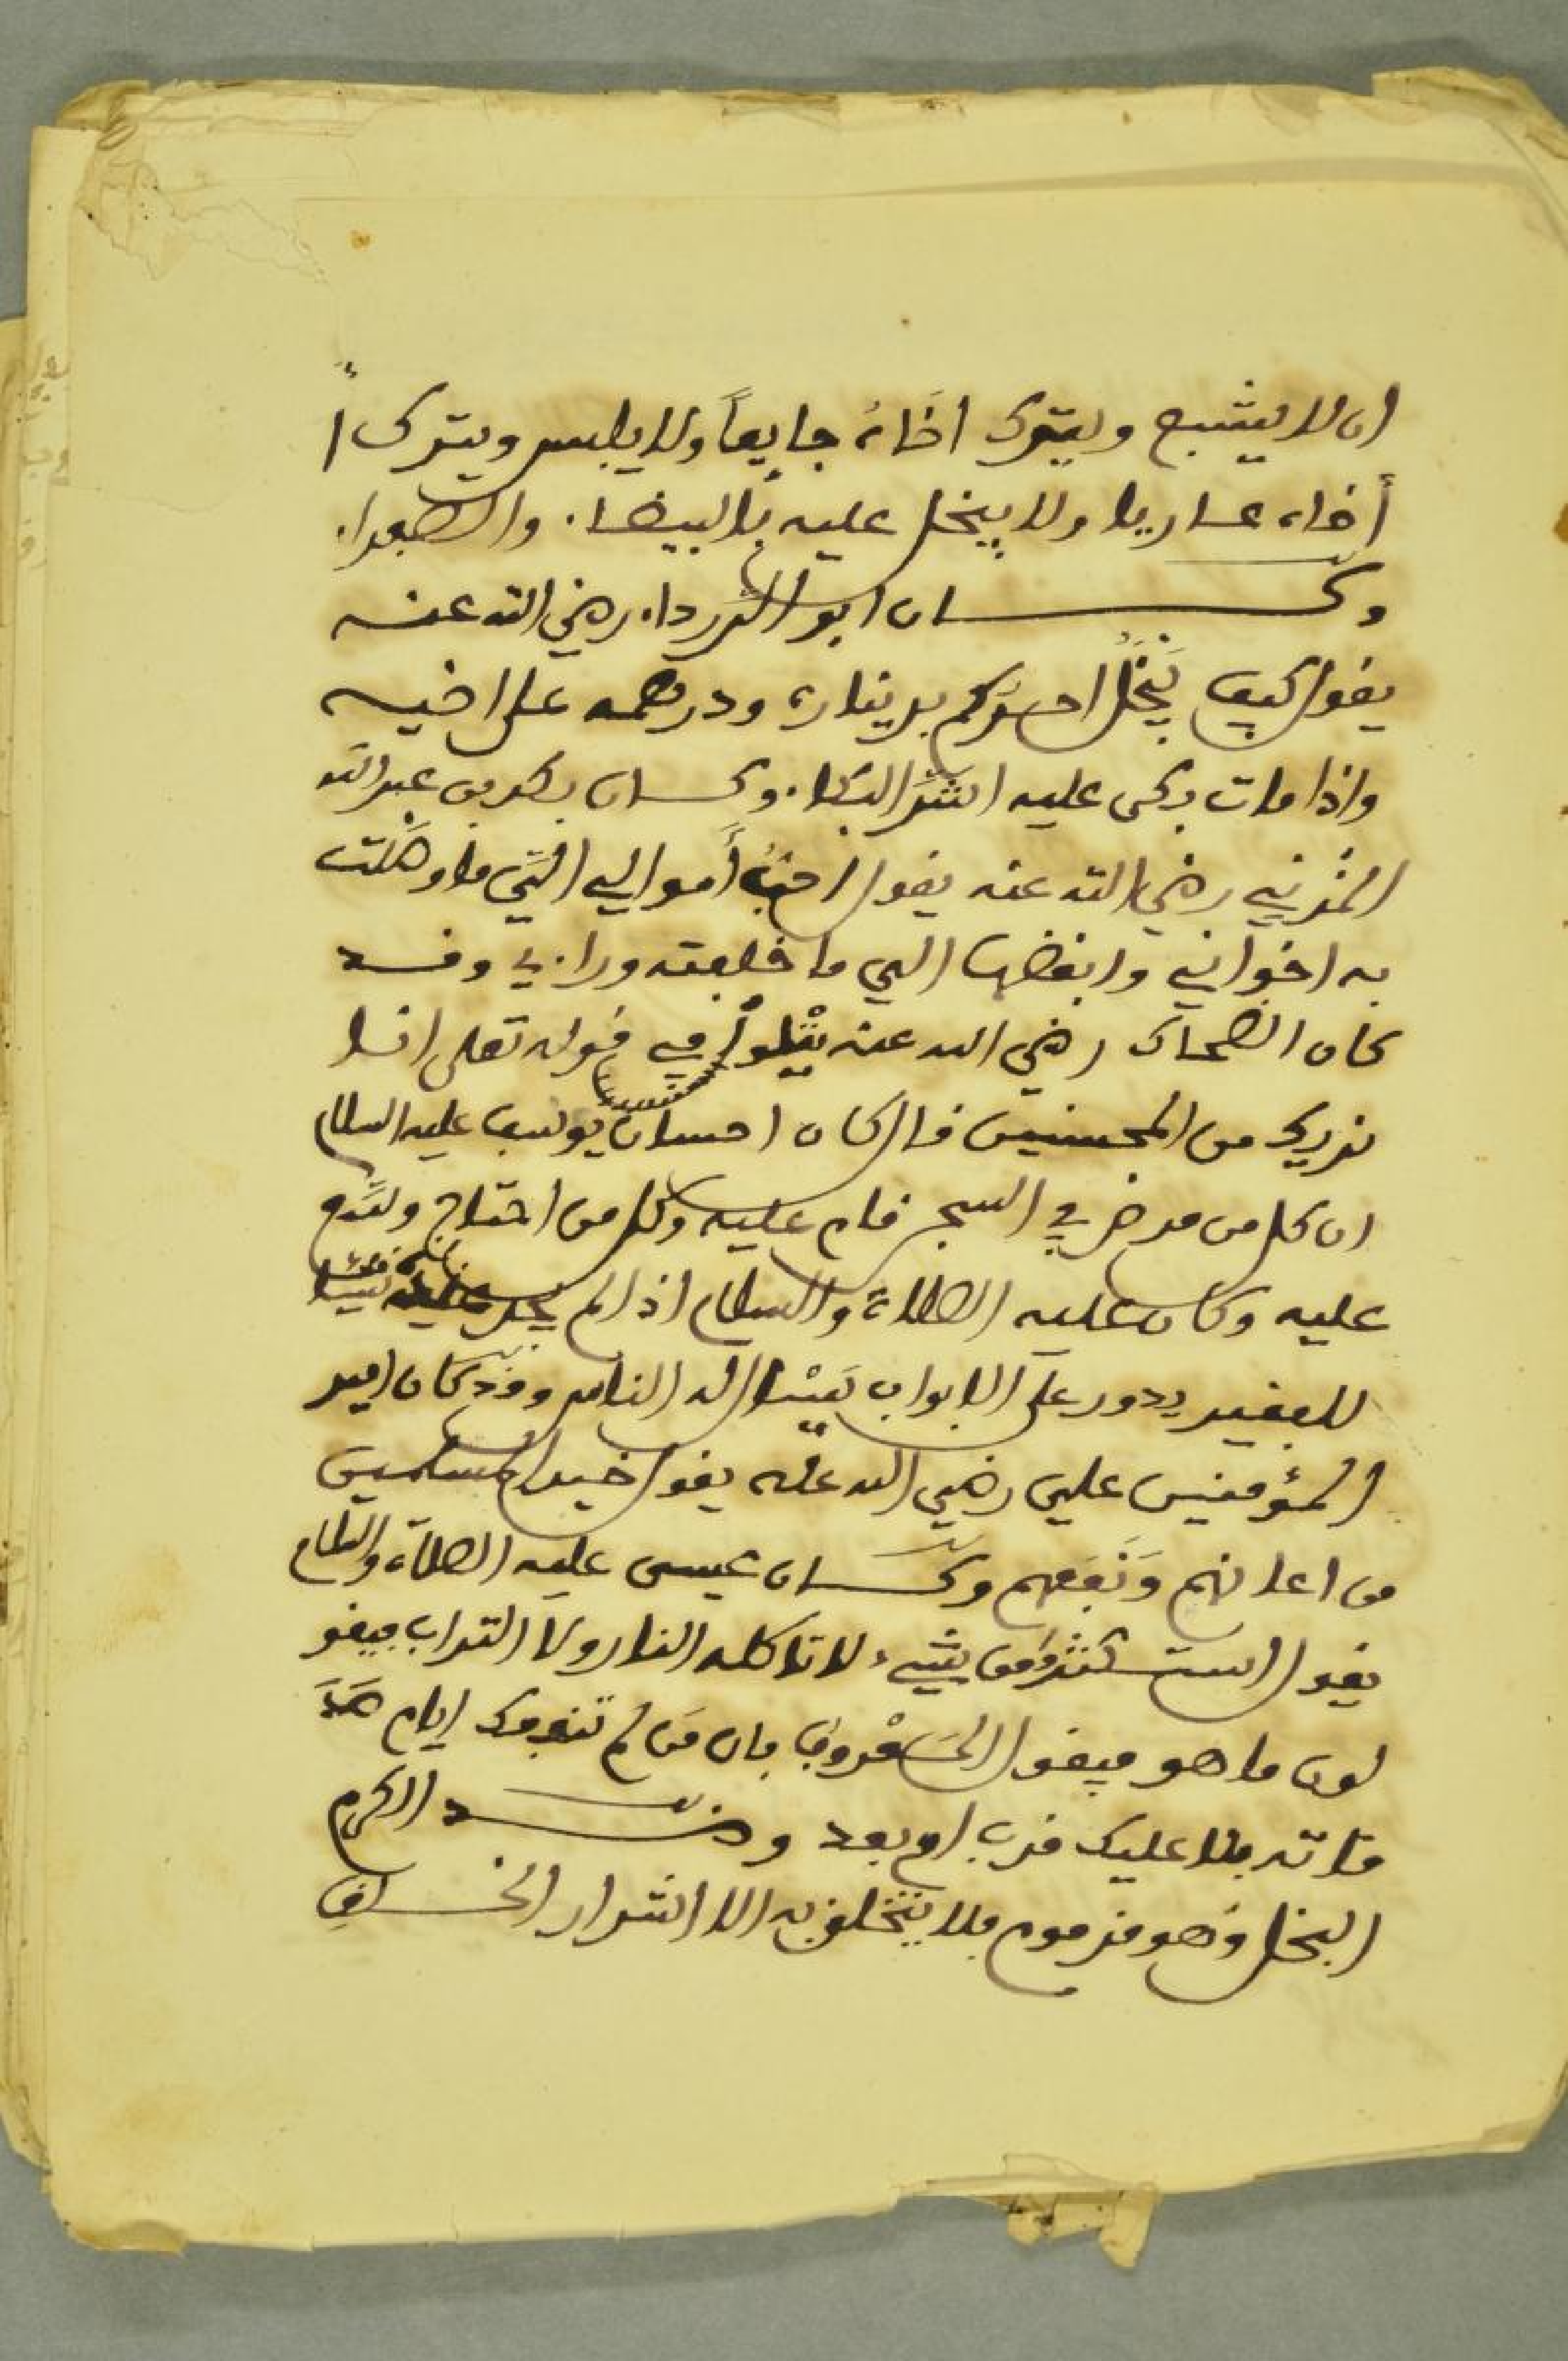 ان لا يشبع ويترك اخاه جايعاً ولا يلبس ويترك ا
أخاه عاريا ولا يبخل عليه بالبيضا. والصفرا.
وكان ابو الدرداء رضي الله عنه
يقول كيف يَبْخَلُ احدكم بديناره ودرهمه على اخيه
واذا مات بكى عليه اشدّ البكا. وكان بكر بن عبد الله
المزني رضي الله عنه يقول احبّ أموالي اليّ ما وصلت
به اخواني وابغضها الي ما خلفته وراءي وقد
كان الضحاك رضي الله عنه يتلوا في قوله تعلى انا
نريك من المحسنين قال كان احسان يوسف عليه السلام
ان كل من مرض في السجن قام عليه وكل من احتاج وسّع
عليه وكان عليه الصلاة والسلام اذا لم يجد شيئا
للفقير يدور على الابواب يَسْأل له الناس وقد كان امير
المؤمنين علي رضي الله عنه يقول خير المسلمين
من اعانهم وَنَفَعهم وكان عيسى عليه الصلاة والسلام
يقول استكثروا من شيء لا تاكله النار ولا التراب فيقو
لون ما هو فيقول المَعْرُوف فان من لم تنفعك ايام حيا
قاته فلا عليك قرب ام بعد وضد الكرم
البخل وَهو مذموم فلا يتخلق به الا اشرار الخلق